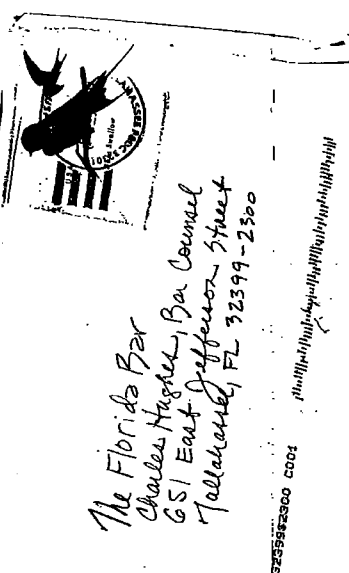 The Florida Bar
Charles Hughes, Bar Counsel
651 East Jefferson Street
Tallahassee, FL 32399-2300
32399$2300 C001